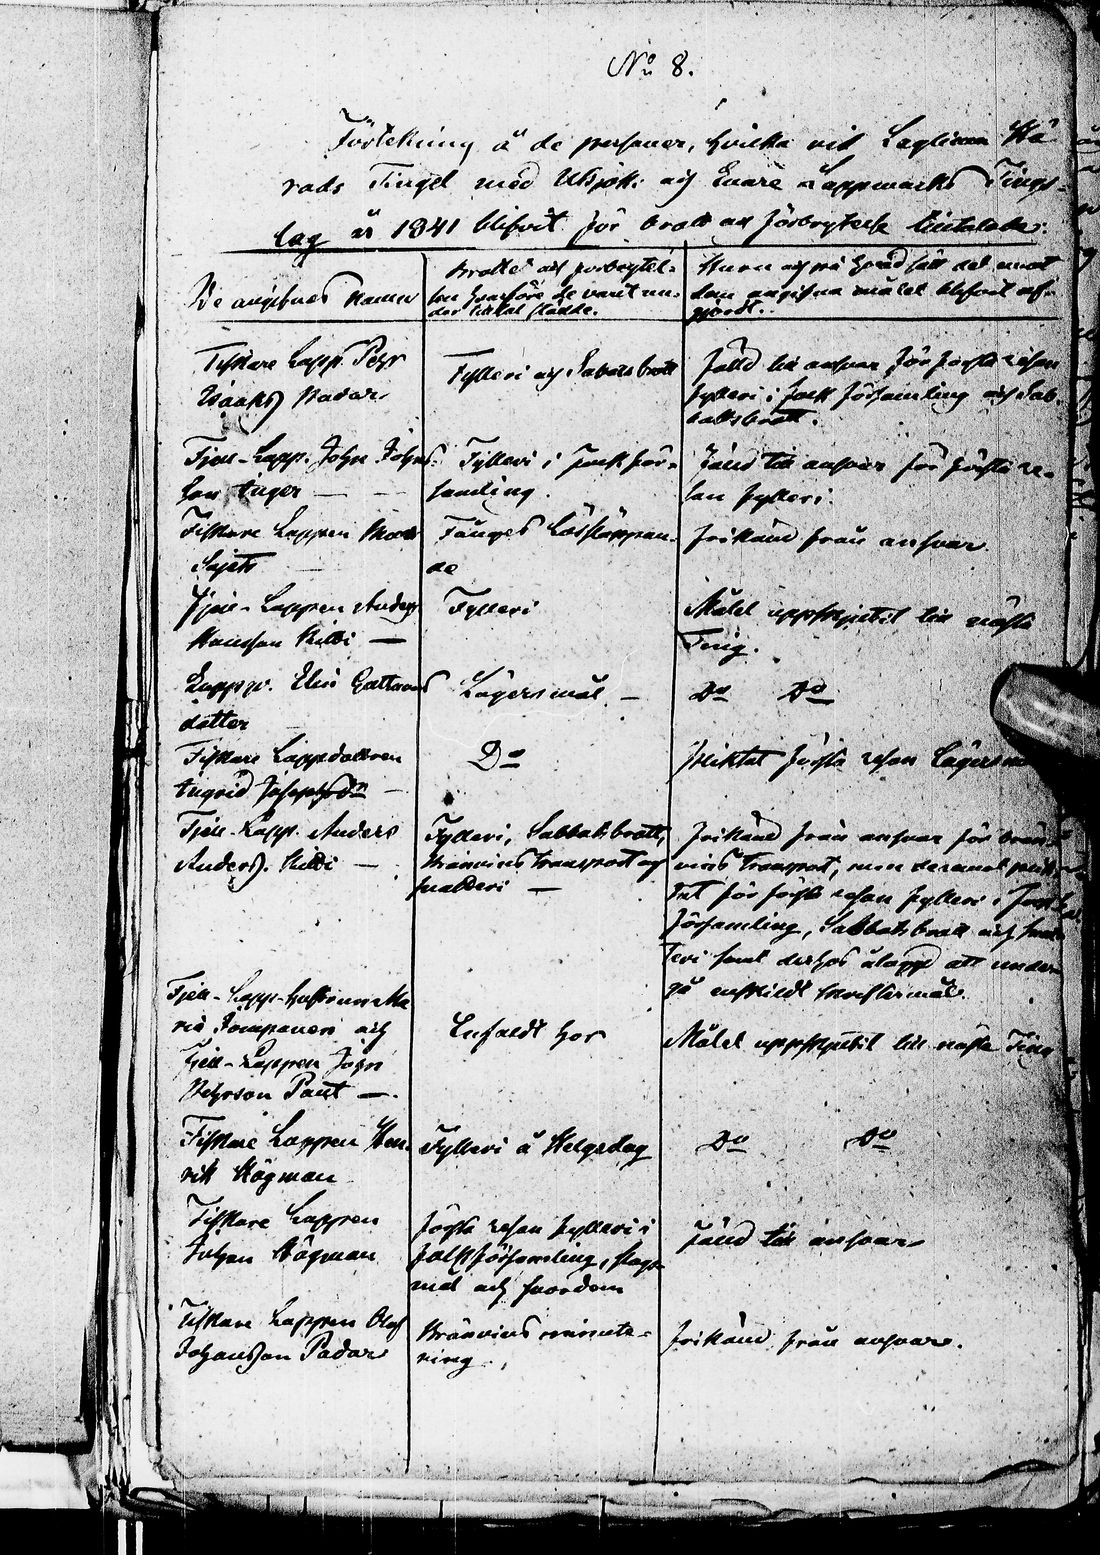 No 8.
Förtekning å de personer, hvilka vid Laglima Hä-
rads Tinget med Utsjoki och Enare Lappmarks Tings-
lag år 1841 blifvit för brott och förbrytelse tilltalade.
De angifnes Namn
Brottet och förbrytel-
sen hvarföre de varit un-
der tilltal stadde.
Huru och på hvad sätt det emot
dem angifna målet blifvit af-
gjordt.
Fiskare Lapp. Pehr
Isaaks) Padar
Fylleri och Sabatsbrott
Fälld till ansvar för första resan
fylleri i folk församling och Sab-
batsbrott.
Fjell-Lapp. John Johns-
son Anger
Fylleri i folk för-
samling.
Fälld till ansvar för första re-
san fylleri.
Fiskare Lappen
Sajets
Fånges Lössläppan-
de
Frikänd från ansvar.
Fjell-Lappen Anders
Hansson Kitti
Fylleri
Målet uppskjutit till nästa
Ting.
Lappp. Elin Guttorms
dotter
Lägersmål
Do Do
Fiskare Lappdottren
Ingrid Josephsdr
Do
Pliktat första resan Lägersmål
Fjell-Lapp. Anders
Anders). Kitti
Fylleri, Sabbatsbrott,
Brännvins transport og
snatteri
Frikänd från ansvar för brän-
vins transport, men deremot plik-
tat för första resan fylleri i folk
församling, Sabbatsbrott och snat-
teri samt derhos ålagd att under-
gå enskildt skriftermål.
Fjell-Lapp-hustrun Ma
ria Jompaneri och
Fjell-Lappen John
Pehrson Paut
Enfaldt hor
Målet uppskjutit till nästa Ting
Fiskare Lappen Hen-
rik Högman
Fylleri å Helgedag
Do Do
Fiskare Lappen
Johan Högman
första resan fylleri i
folkförsamling, slags-
mål och svordom
Fälld till ansvar
Fiskare Lappen Olof
Johansson Padar
Brännvins minute-
ring
Frikänd från ansvar.